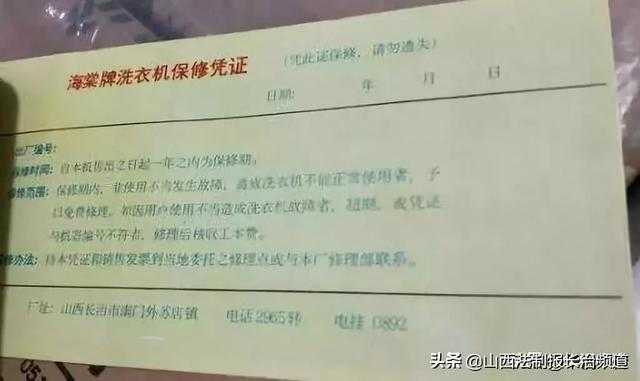 海棠牌洗衣机保修凭证 (凭此证保修,请勿遗失)
日期: 年 月 日
出厂编号:
保修时间:自本机售出之日起一年之内为保修期。
保修范围:保修期内,非使用不当发生故障,造成洗衣机不能正常使用者,予
以免费修理。如因用户使用不当造成洗衣机故障者,超期,或凭证
与机器编号不符者,修理后核收工本费。
保修办法:持本凭证和销售发票到当地委托之修理点或与本厂修理部联系。
厂址:山西长治市南门外苏店镇 电话2965转 电挂 0892
头条 @山西法制报长治频道